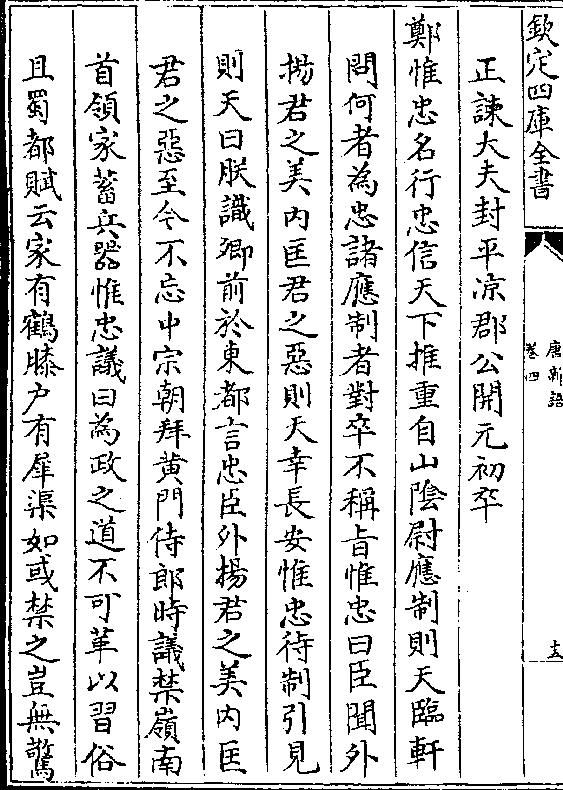 欽定四庫全書
唐新語
卷四
十五
正諫大夫封平凉郡公開元初卒
鄭惟忠名行忠信天下推重自山陰尉應制則天臨軒
問何者為忠諸應制者對卒不稱旨惟忠曰臣聞外
揚君之美内匡君之惡則天幸長安惟忠待制引見
則天曰朕識卿前於東都言忠臣外揚君之美内匡
君之惡至今不忘中宗朝拜黄門侍郎時議禁嶺南
首領家蓄兵器惟忠議曰為政之道不可革以習俗
且蜀都賦云家有鶴膝户有犀渠如或禁之豈無驚